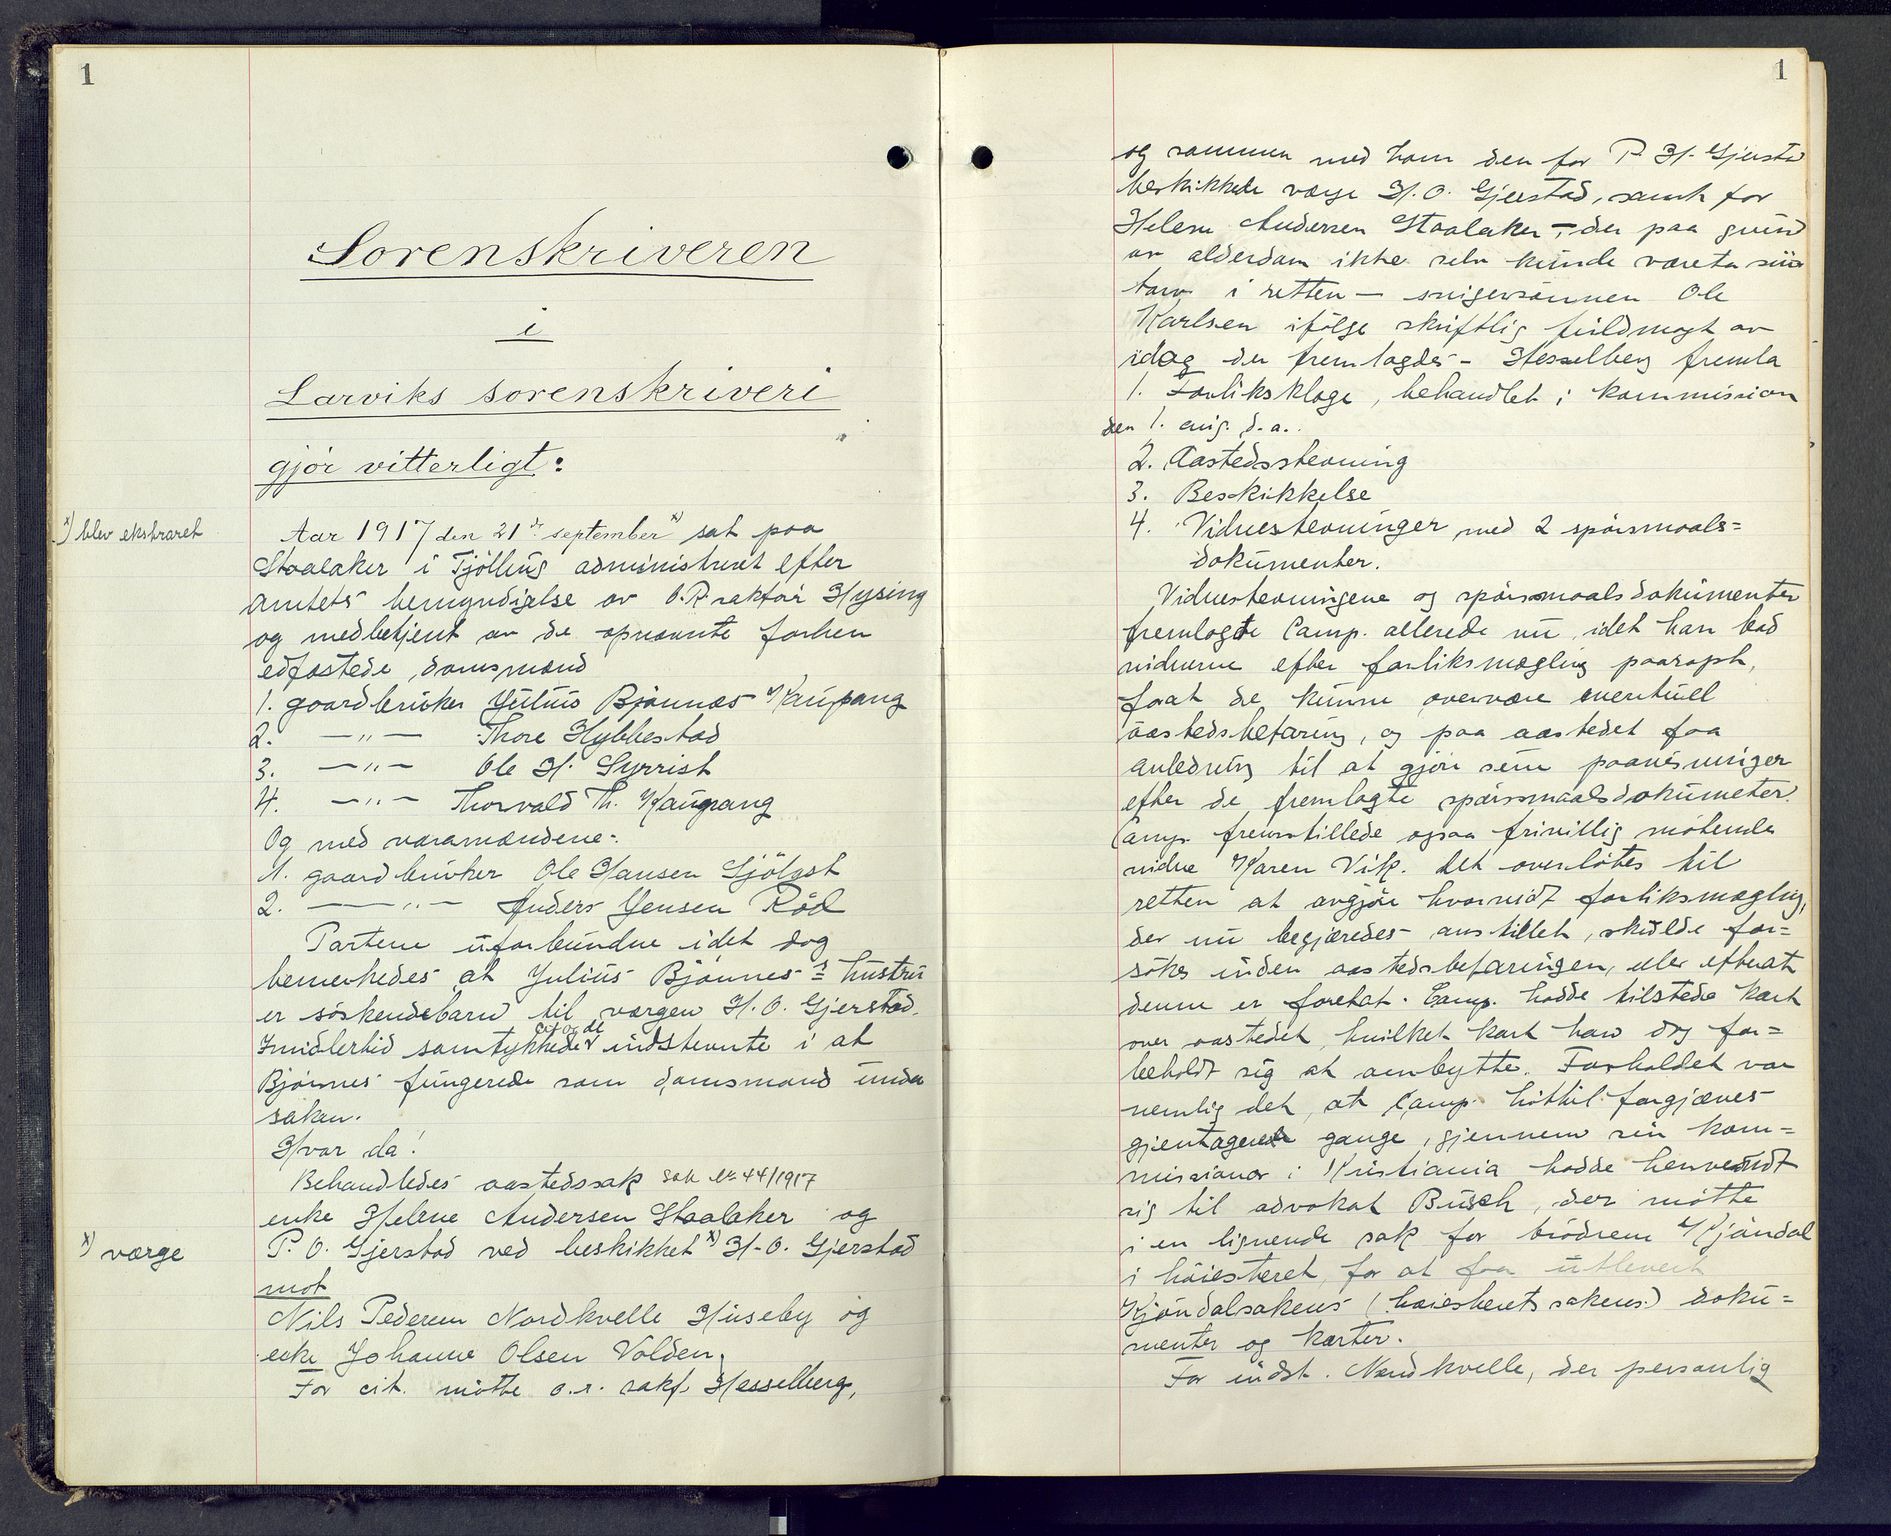 1
Sorenskriveren
i
Larviks sorenskriveri
gjør vitterligt:
x) blev ekstraret
Aar 1917 den 21de september x) sat paa
Staalaker i Tjølling administreret efter
amtets bemyndigelse av O.R.sakfør Hysing
og medbetjent av de opnævnte forhen
edfæstede domsmænd
1. gaardbruker Julius Bjønnes Kaupang
2. —"— Thore Hybbestad
3. —"— Ole H. Syrrist
4. —"— Thorvald Th. Kaupang
Og med varamændene:
1. gaardbruker Ole Hansen Sjølyst
2. —"— Anders Jensen Rød
Partene uforbundne idet dog
bemerkedes at Julius Bjønnes's hustru
er søskendebarn til værgen H. O. Gjerstad.
Imidlertid samtykkede cit og de indstevnte i at
Bjønnes fungerede som domsmand under
saken.
Hvor da!
Behandledes aastedssak sak No 44/1917
enke Helene Andersen Staalaker og
P. O. Gjerstad ved beskikket x) H. O. Gjerstad
x) værge
mot
Nils Pedersen Nordkvelle Huseby og
enke Johanne Olsen Volden.
For cit. møtte o.r. sakf. Hesselberg,
1
og sammen med ham den for P. H. Gjersta
beskikkede værge H. O. Gjerstad, samt for
Helene Andersen Staalaker – der paa grund
av alderdom ikke selv kunde vareta sin
tarv i retten – svigersønnen Ole
Karlsen ifølge skriftlig fuldmagt av
idag der fremlagdes – Hesselberg fremla
1. Forliksklage, behandlet i kommission
den 1. aug. d.a..
2. Aastedsstevning
3. Beskikkelse
4. Vidnestevninger med 2 spørsmaals=
dokumenter.
Vidnestevningene og spørsmaalsdokumenter
fremlagte Comp. allerede nu, idet han bad
vidnerne efter forliksmægling paaropt,
forat de kunne overvære eventuell
aastedsbefaring, og paa aastedet faa
anledning til at gjøre sine paavisninger
efter de fremlagte spørsmaalsdokumeter.
Comp. fremstillede ogsaa frivillig møtende
vidne Karen Vik. Det overlotes til
retten at avgjøre hvorvidt forliksmægling,
der nu begjæredes anstillet, skulde for=
søkes inden aastedsbefaringen, eller efterat
denne er foretat. Comp. hadde tilstede kart
over aastedet, hvilket kart han dog for=
beholdt sig at ombytte. Forholdet var
nemlig det, at Comp. hittil forgjæves
gjentagende gange, gjennem sin kom=
missionær i Kristiania hadde henvendt
sig til advokat Busch, der møtte
i en lignende sak for brødrene Kjøndal
i høiesteret, for at faa utlevert
Kjøndalsakens (høiesteretssakens) doku=
menter og karter.
For indst. Nordkvelle, der personlig